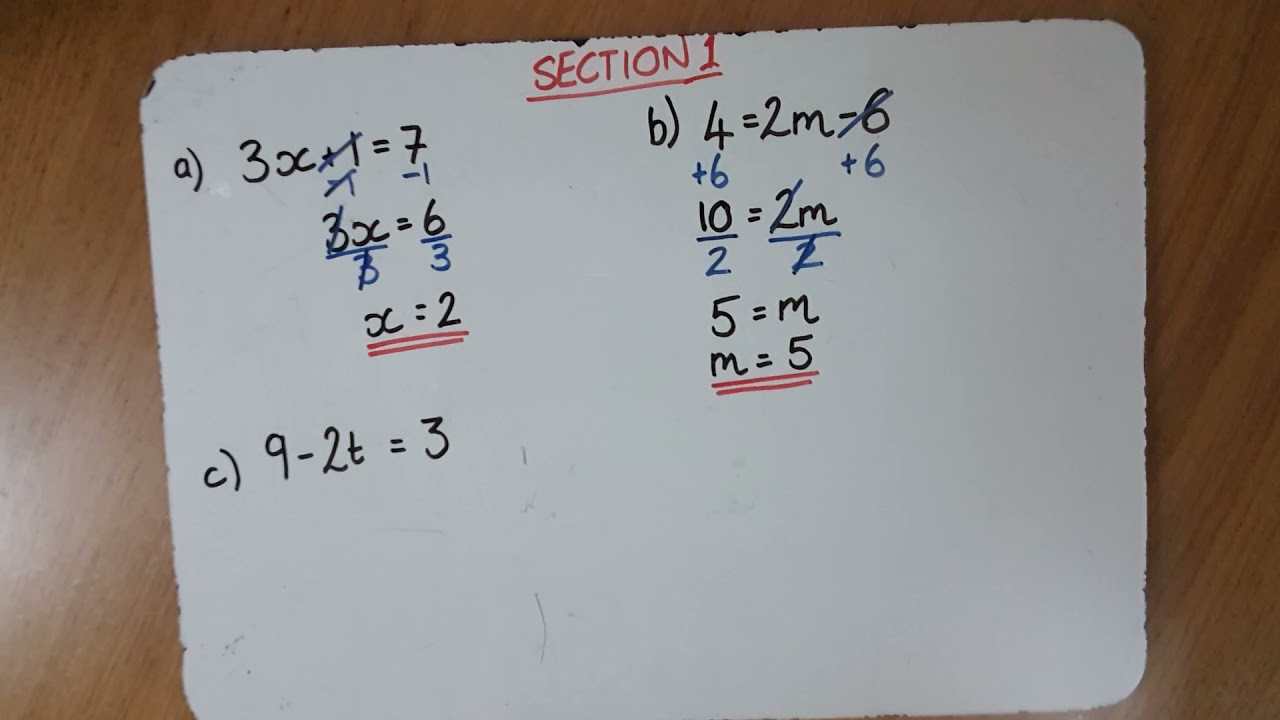 SECTION 1
a) 3x+1=7
-1 -1
3x = 6
3 3
x = 2
b) 4=2m-6
+6 +6
10 = 2m
2 2
5 = m
m = 5
c) 9-2t = 3